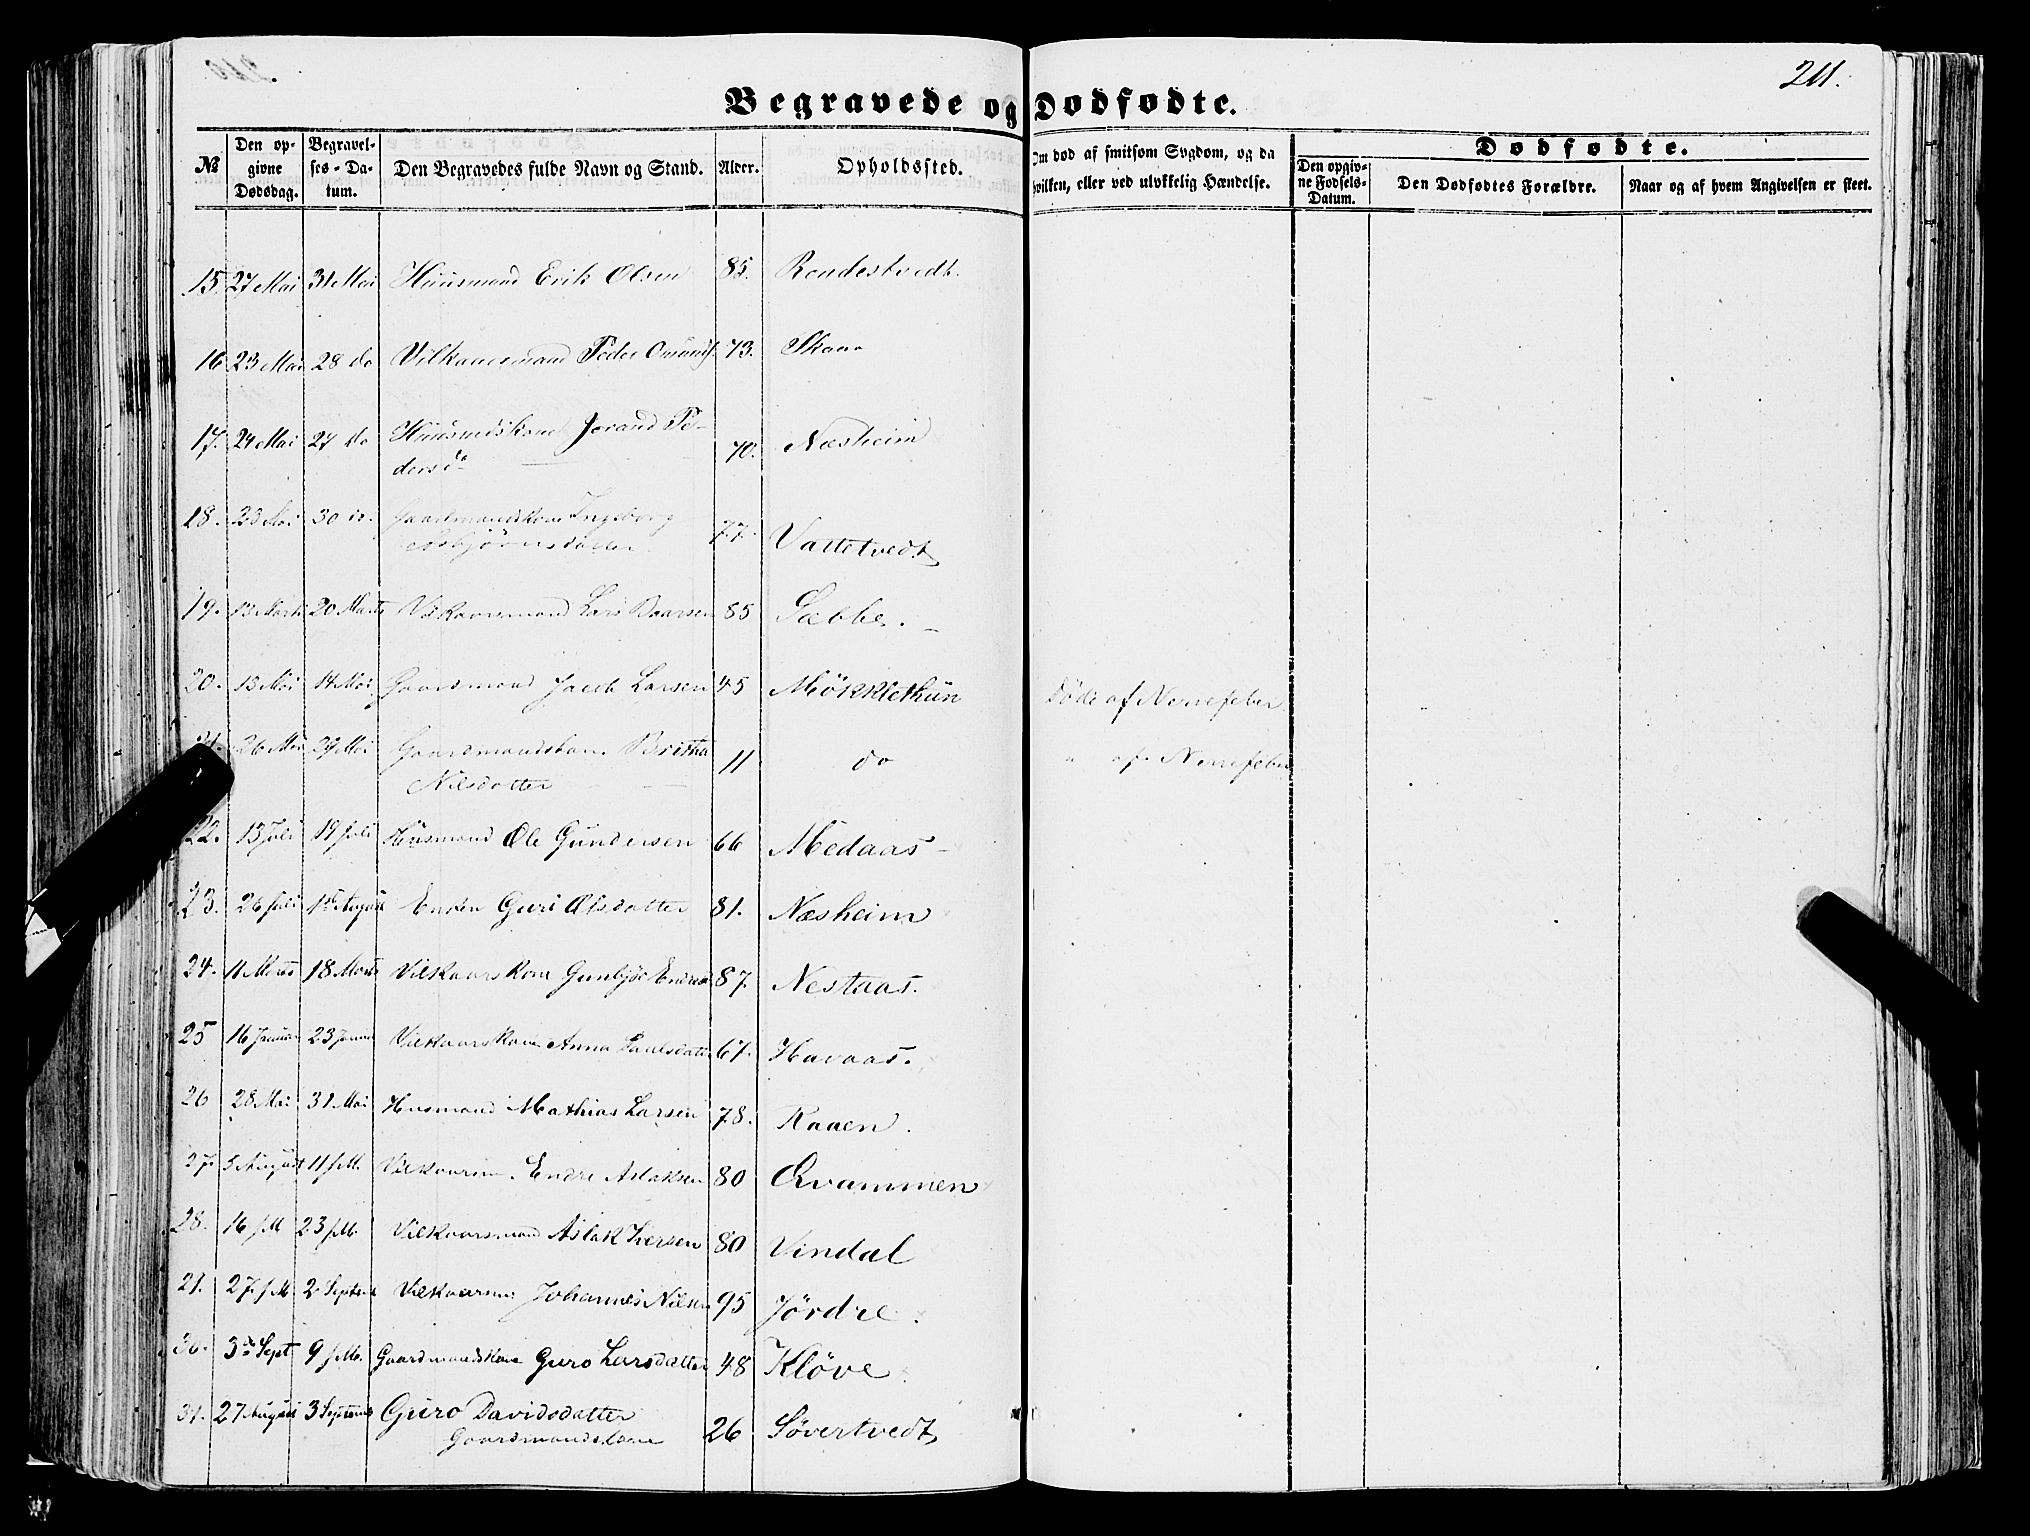 211.
Begravede og Dødfødte.
№ Den opgivne Dødsdag. Begravelses-Datum. Den Begravedes fulde Navn og Stand. Alder. Opholdssted. Om død af smitsom Sygdom, og da hvilken, eller ved ulykkelig Hændelse. Dødfødte. Den opgivne Fødsels-Datum. Den Dødfødtes Forældre. Naar og af hvem Angivelsen er skeet.
15. 27 Mai 31 Mai Huusmand Erik Olsen 85. Rondestvedt.
16 23 Mai 28 do Vilkaarsmand Peder 73.
17. 24 Mai 27 do Huusmdskone Jorand Pe-
dersdr 70. Næsheim
18. 23 Mai 30 do. Gaardmandskone Ingeborg
Asbjørnsdatter 77. Vattetvedt
19. 13 Marts 20 Marts Vilkaarsmand Lars Baarsen 85 Sæbbe.
20. 13 Mai 14 Mai Gaardmand Jacob Larsen 45 Møkklethun Døde af Nervefeber
21. 26 Mai 29 Mai Gaardmandskone Britha
Nilsdatter 11 do " af Nervefeber
22. 13 Juli 19 Juli Husmand Ole Gundersen 66 Medaas
23. 26 Juli 1ste August Enken Guri Olsdatter 81. Næsheim
24. 11 Marts 18 Marts Vilkaarskone Gunbjør 87. Nestaas.
25 16 Januar 23 Januar Vilkaarskone Anna Paulsdatter 67. Havaas.
26 28 Mai 31 Mai Husmand Mathias Larsen 78. Raaen.
27. 5 August 11 s.M. Vilkaarsm. Endre Aslaksen 80 Qvammen
28. 16 s.M 23 s.M. Vilkaarsmand Aslak Iversen 80 Vindal
21. 27. s.M. 2 Septemb Vilkaarsm Johannes Nilsen 95 Jørdre.
30. 3de Sept 9 s.M. Gaardmandskone Guro Larsdatter 48 Kløve
31. 27 August 3 Septemb Guro Davidsdatter
Gaardmandskone 26 Søvertvedt